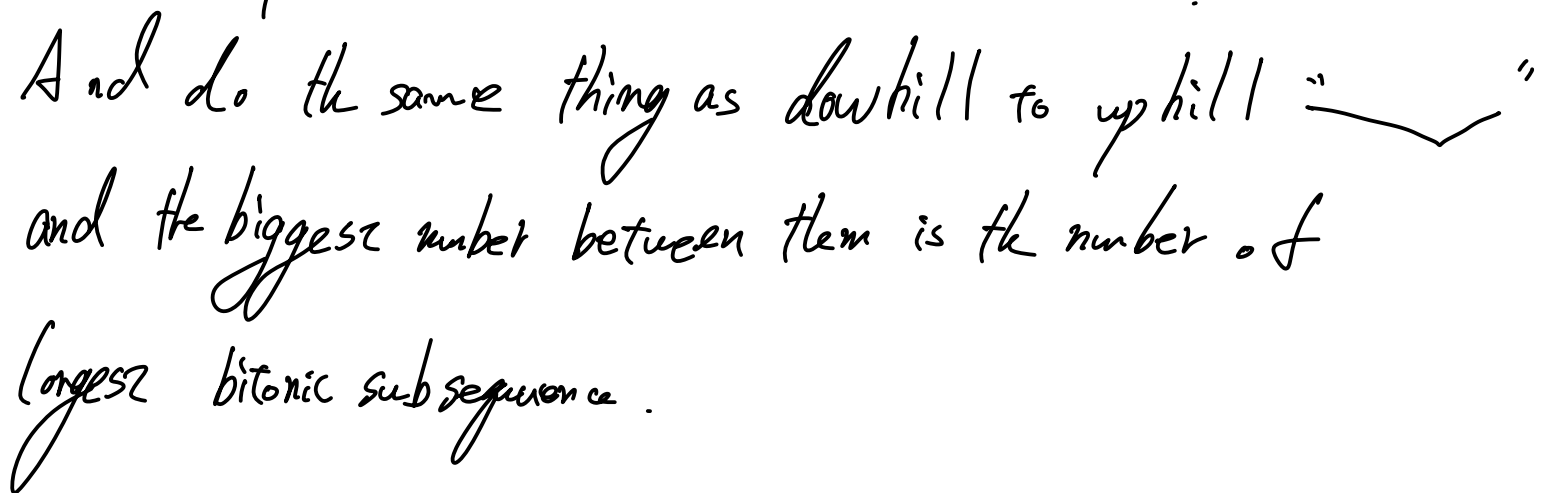 And do the same thing as dowhill to uphill " "
and the biggest number between them is the number of
longest bitonic subsequence.